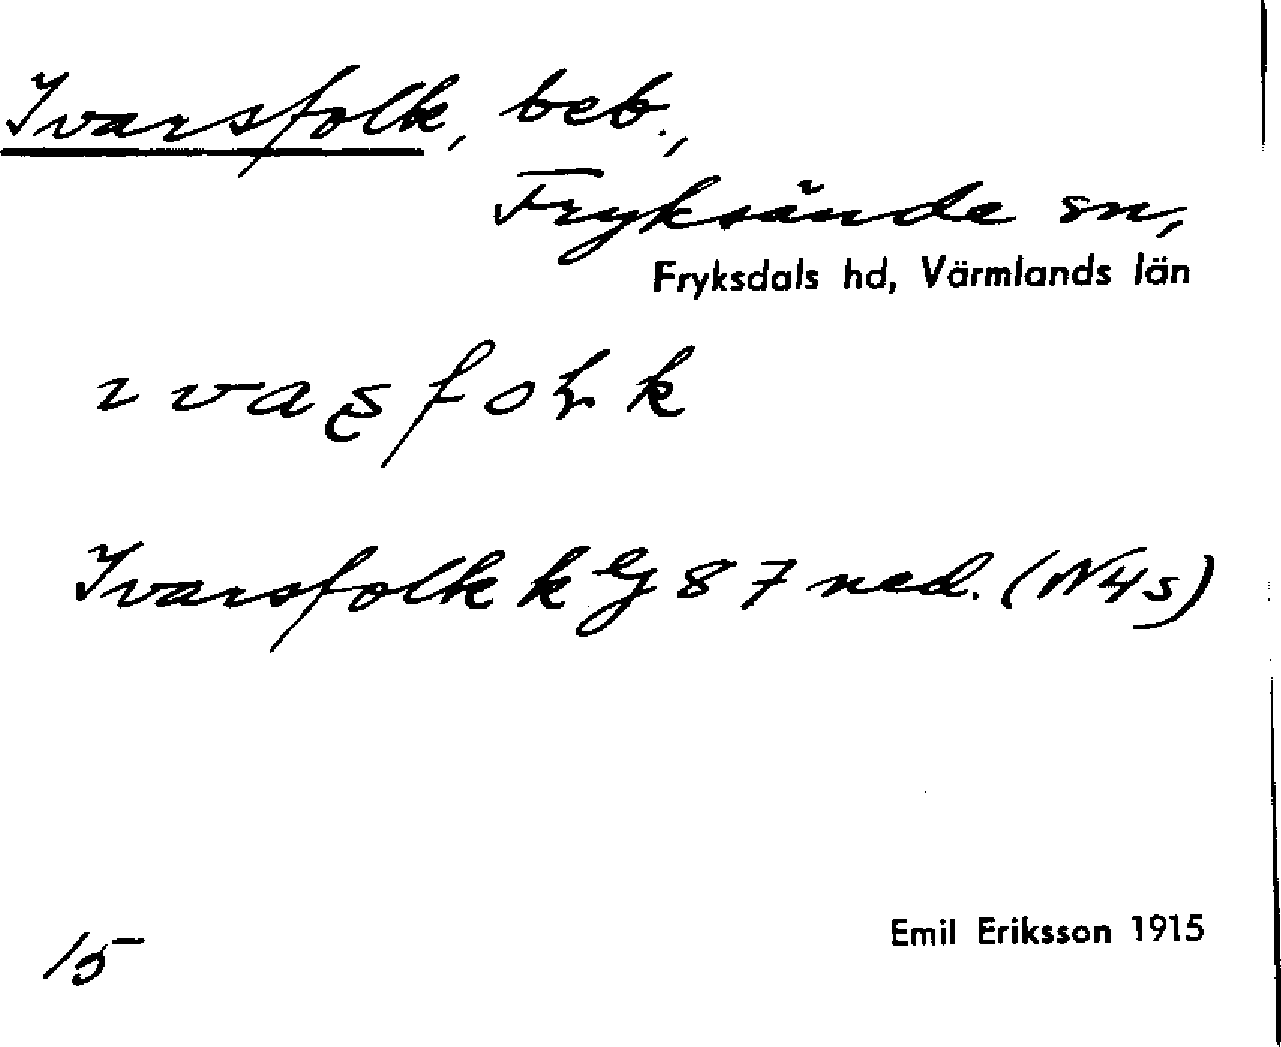 Ivarsfolk, beb.,
Fryksände sn,
Fryksdals hd, Värmlands län
ɩvaʂfoɽk
Ivarsfolk k EG 87 ned. (N4s)
Emil Eriksson 1915
15